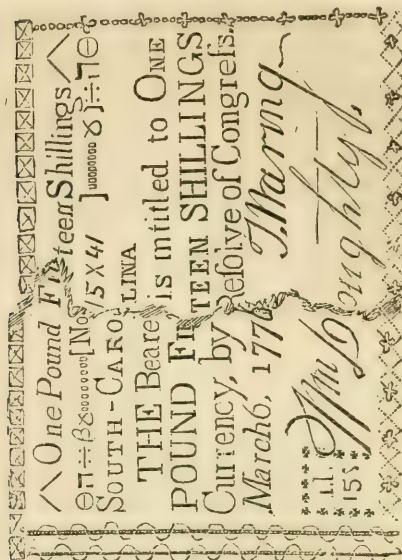 One Pound Fifteen Shillings
[No 15X41]
SOUTH-CAROLINA
THE Bearer is intitled to ONE
POUND FIFTEEN SHILLINGS
Currency, by Resolve of Congreſs.
March 6, 1776
J. Waring
Wm Doughty
1l.
15s